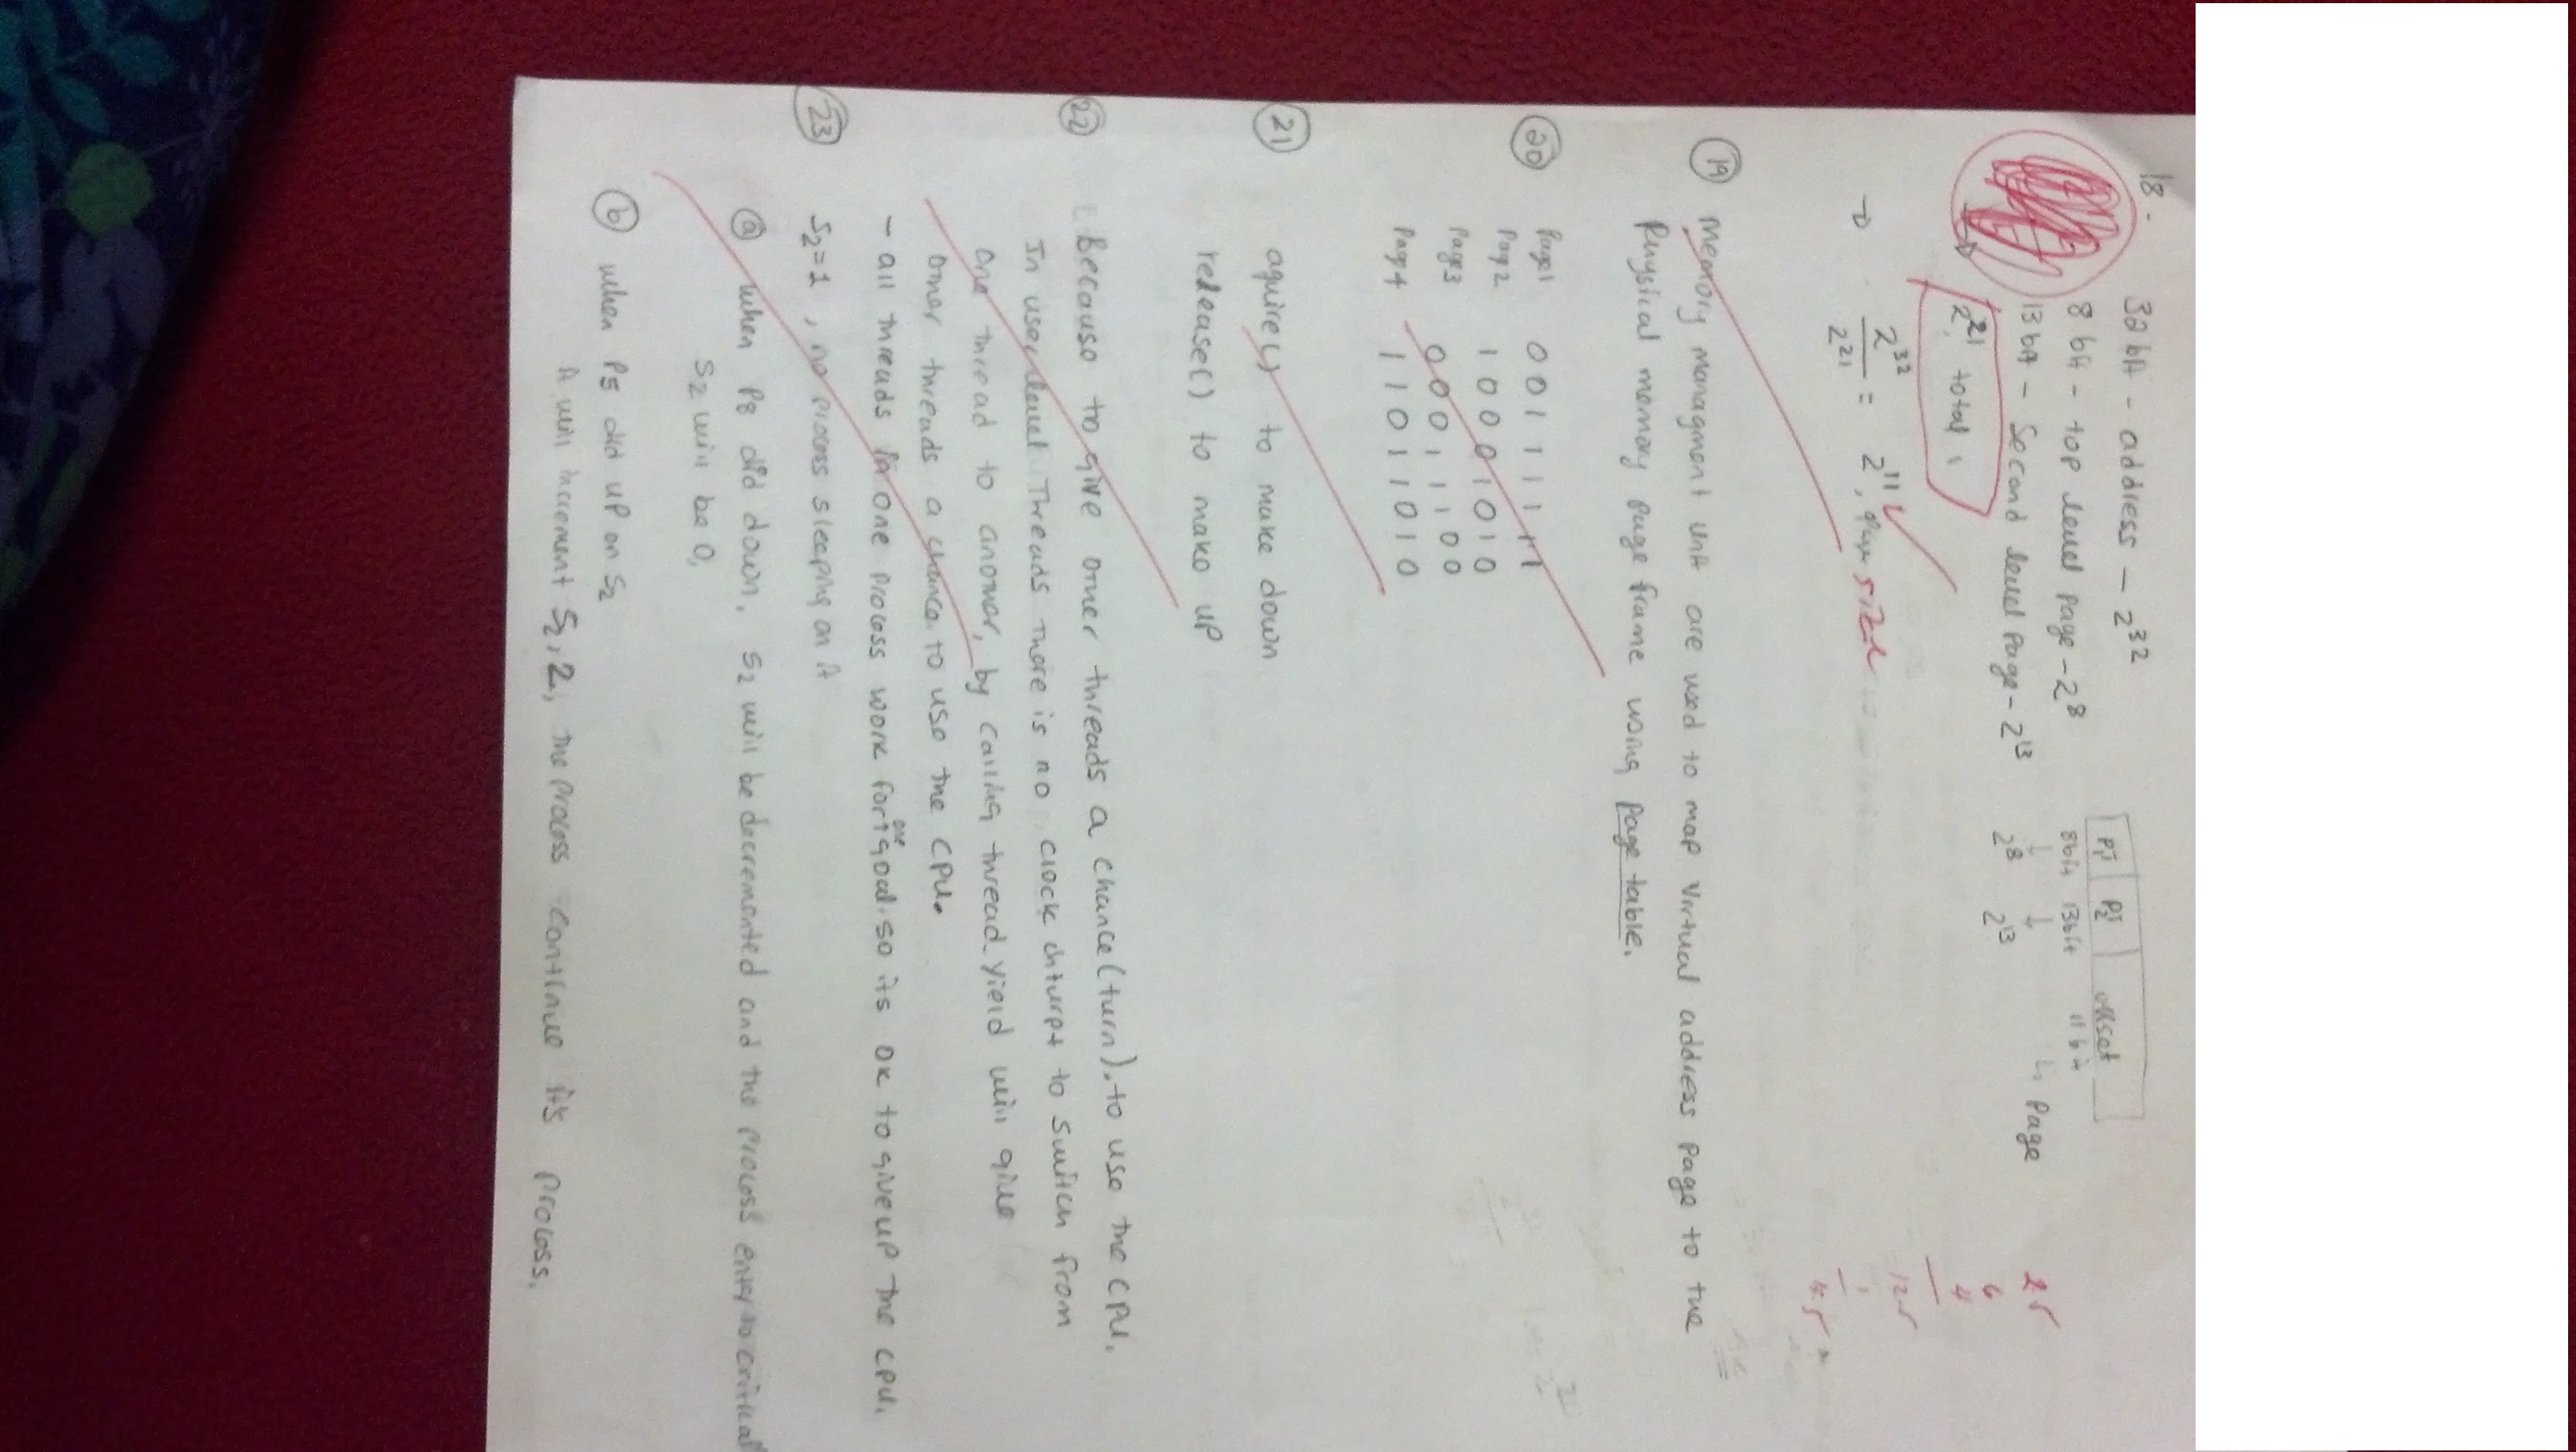 18.
32 bit - address - 2^32
8 bit - top level page - 2^8
13 bit - Second level Page - 2^13
2^21 total
→ 2^32 / 2^21 = 2^11, size
PT1 PT2 offset
8bit 13bit 11 bit
↓ ↓ ↳ Page
2^8 2^13
25
6
4
12.5
1
19 memory managment unit are used to map Virtual address page to the
Physical memory page frame using page table.
20 Page1 0 0 1 1 1 1 1 1
Page2 1 0 0 0 1 0 1 0
Page3 0 0 0 1 1 1 0 0
Page4 1 1 0 1 1 0 1 0
21 aquire() to make down
release() to make up
22 Because to give other threads a chance (turn). to use the CPU.
In user level Threads there is no clock to switch from
one thread to another, by calling thread_yield will give
other threads a chance to use the CPU.
- all threads in one process work for one goal. so its ok to give up the CPU.
23 S2=1, no process sleeping on it
a when P8 did down, S2 will be decremented and the process enter to critical
S2 will be 0,
b when P5 did up on S2
it will increment S2, 2, the process continue it's process.